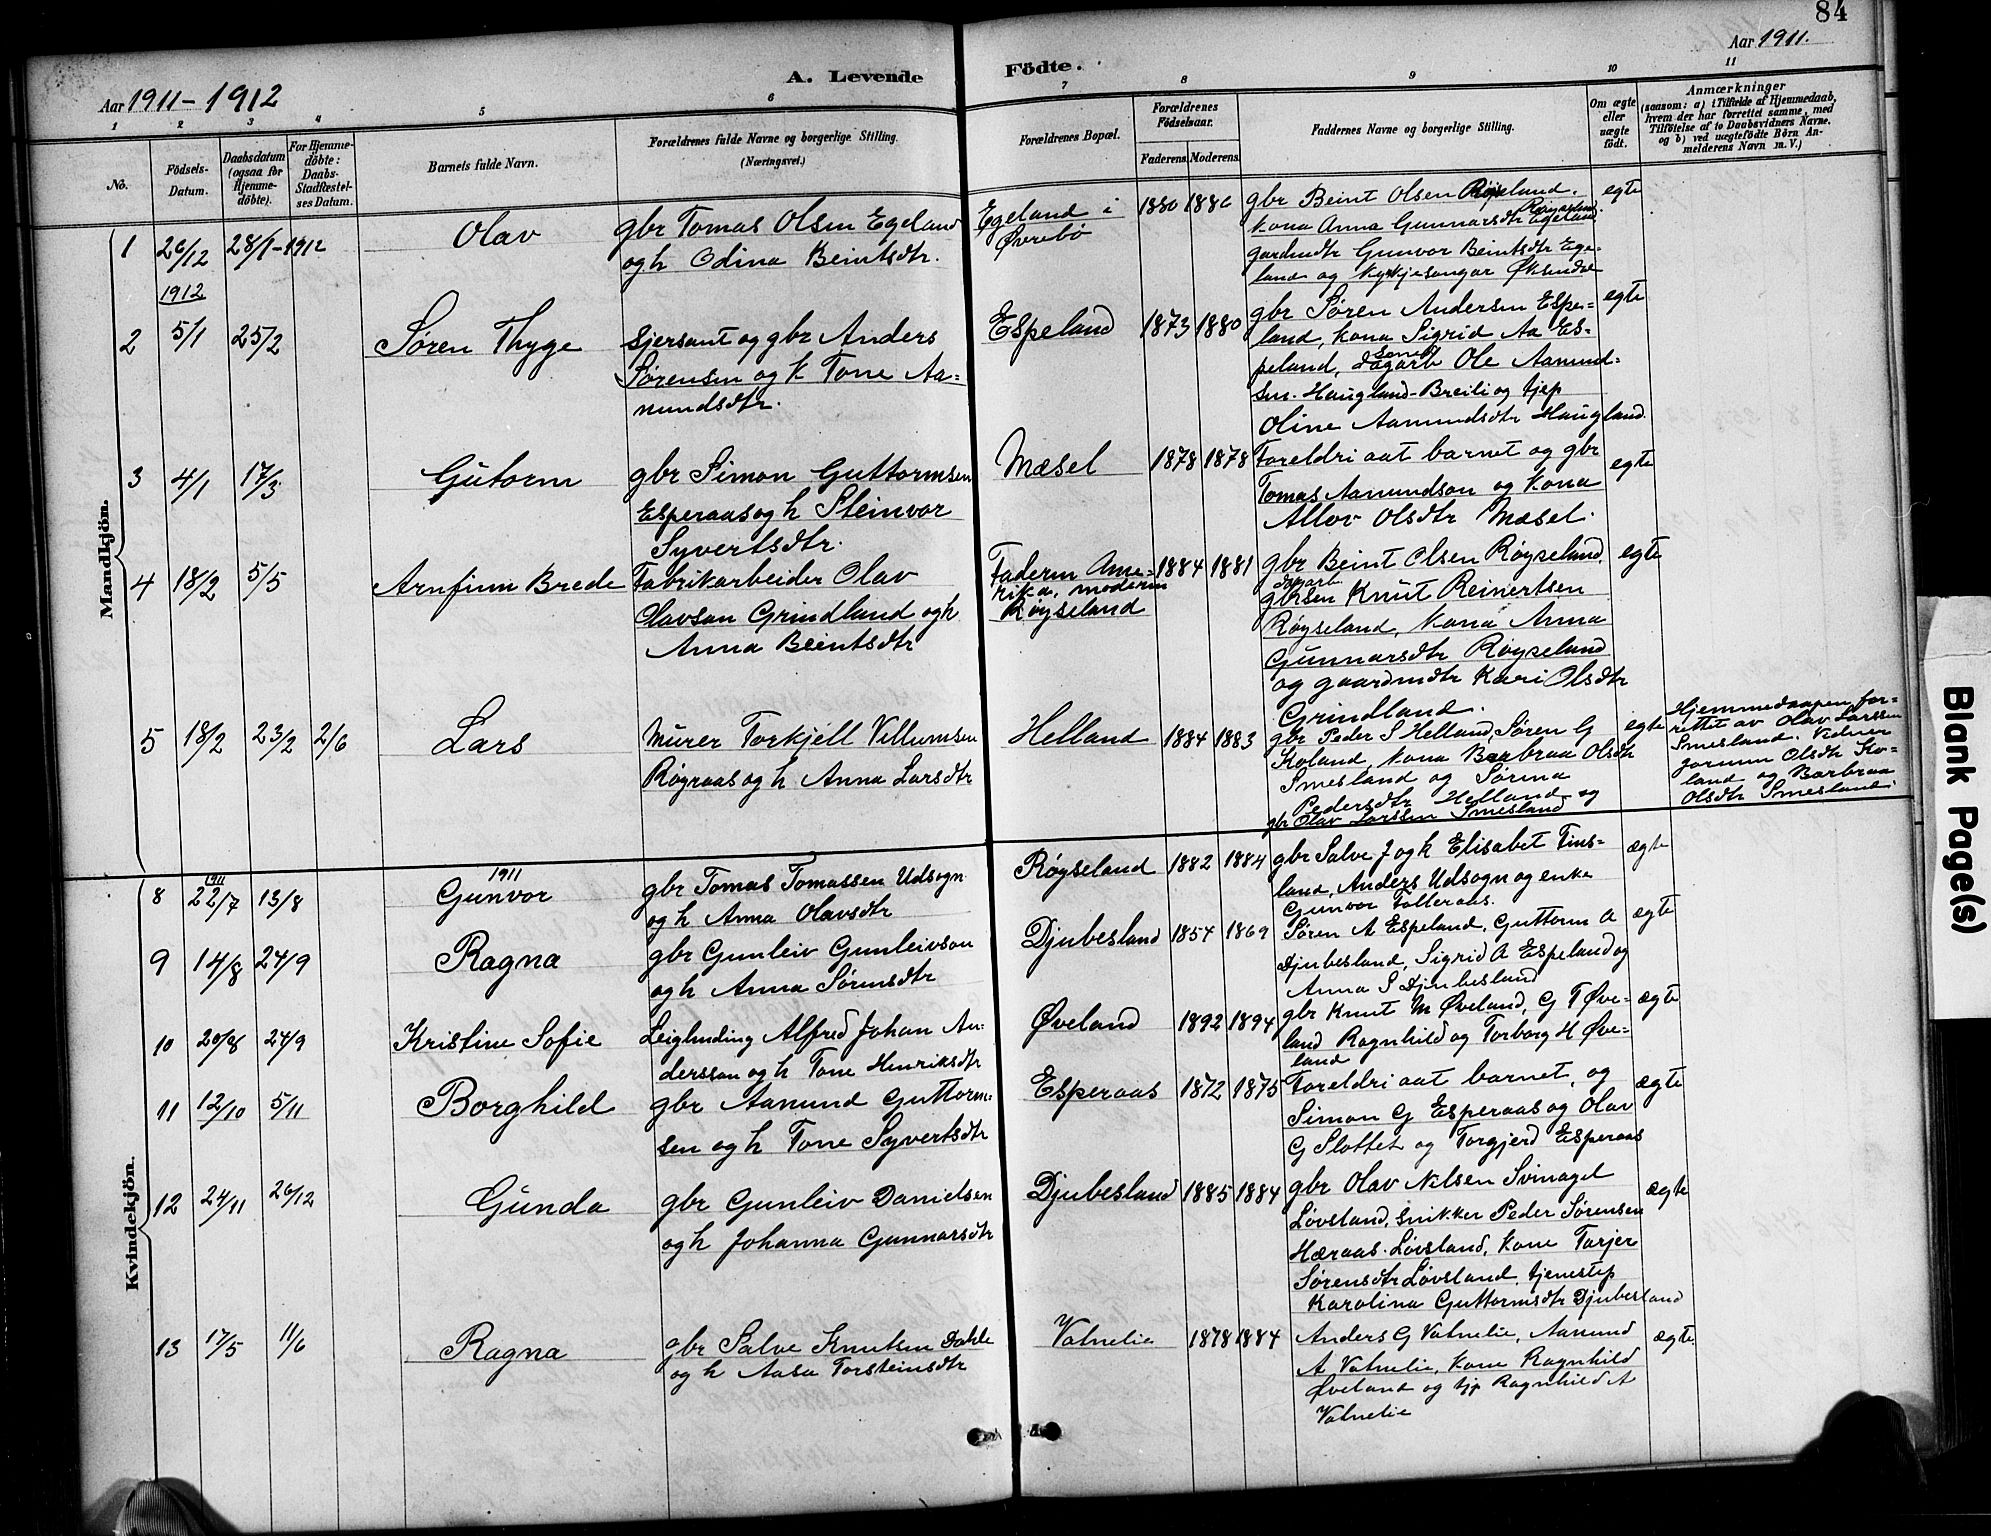 84
Aar 1911-1912
A. Levende Födte.
Aar 1911.
1 2 3 4 5 6 7 8 9 10 11
No.
Födsels-Datum.
Daabsdatum (ogsaa for Hjemme-döbte).
For Hjemme-döbte: Daabs-Stadfæstel-ses Datum.
Barnets fulde Navn.
Forældrenes fulde Navne og borgerlige Stilling.
(Næringsvei.)
Forældrenes Bopæl.
Forældrenes Födselsaar.
Faderens. Moderens.
Faddernes Navne og borgerlige Stilling.
Om ægte eller uægte födt.
Anmærkninger
(saasom: a) i Tilfælde af Hjemmedaab, hvem der har forrettet samme, med Tilföielse af to Daabsvidners Navne, og b) ved uægtefödte Börn Anmelderens Navn m. V.)
Mandkjön.
1 26/12 28/1-1912 Olav
gbr Tomas Olsen Egeland
og h Odina Beintsdtr.
Egeland i
Øvrebö
1880 1886
gbr Beint Olsen Røyseland.
kona Anna Gunnarsdtr Røyseland
gardmdtr Gunvor Beintsdtr Ege-
land og kyrkjesongar Øksendal
egte
1912
2 5/1 25/2 Søren Thyge
Sjersant og gbr Anders
Sørensen og k Tone Aa-
nundsdtr.
Espeland 1873 1880
gbr Søren Andersen Espe-
land, kona Sigrid Aa Es-
peland, dagarb Ole Aanund-
sen. Haugland-Breili og tjep
Oline Aamundsdtr Haugland.
egte
3 4/1 17/3 Gutorm
gbr Simon Guttormsen
Esperaas og h Steinvor
Syvertsdtr.
Mæsel 1878 1878
Foreldri aat barnet og gbr
Tomas Aamundson og kona
Allov Olsdtr Mæsel.
egte
4 18/2 5/5 Arnfinn Brede
Fabrikarbeider Olav
Olavson Grindland og h
Anna Beintsdtr
Faderen Ame-
rika, moderen
Røyseland
1884 1881
gbr Beint Olsen Røyseland,
gbrsen Knut Reinertsen
Røyseland, kona Anna
Gunnarsdtr Røyseland
og gaardmdtr Kari Olsdtr
Grindland.
egte
5 18/2 23/2 2/6 Lars
Murer Torkjell Villumsen
Røyraas og h Anna Larsdtr
Helland 1884 1883
gbr Peder S Helland, Søren G
Koland, kona Barbraa Olsdtr
Smesland og Sørina
Pedersdtr Helland og
gbr Olav Larssen Smesland
egte
Hjemmedaapen for-
rettet av Olav Larssen
Smesland. Vidner
Jorunn Olsdtr Ko-
land og Barbraa
Olsdtr Smesland.
Kvindekjön.
1911 1911
8 22/7 13/8 Gunvor
gbr Tomas Tomassen Udsogn
og h Anna Olavsdtr
Røyseland 1882 1884
gbr Salve J og k Elisabet Fins-
land, Anders Udsogn og enke
Gunvor Følleraas.
ægte
9 14/8 24/9 Ragna
gbr Gunleiv Gunleivson
og h Anna Sørensdtr
Djubesland 1854 1869
Søren A Espeland, Guttorm A
Djubesland, Sigrid A Espeland og
Anna S Djubesland
ægte
10 20/8 24/9 Kristine Sofie
Leiglending Alfred Johan An-
dersson og h Tone Henriksdtr
Øveland 1892 1894
gbr Knut M Øveland, G T Øve-
land Ragnhild og Torborg H Øve-
land
ægte
11 12/10 5/11 Borghild
gbr Aanund Guttorm-
sen og h Tone Syvertsdtr
Esperaas 1872 1875
Foreldri aat barnet, og
Simon G Esperaas og Olav
G Slottet og Torgjerd Esperaas
ægte
12 24/11 26/12 Gunda
gbr Gunleiv Danielsen
og h Johanna Gunnarsdtr
Djubesland 1885 1884
gbr Olav Nilsen Svinagel
Løvsland, snikker Peder Sørensen
Hæraas-Løvsland, kone Torjer
Sørensdtr Løvsland, tjenestep
Karolina Guttormsdtr Djubesland
ægte
13 17/5 11/6 Ragna
gbr Salve Knutsen Dahle
og h Aasa Torsteinsdtr
Vatnelie 1878 1884
Anders G Vatnelie, Aanund
A Vatnelie, kone Ragnhild
Øveland og tjp Ragnhild A
Vatnelie
ægte.
Blank Page(s)